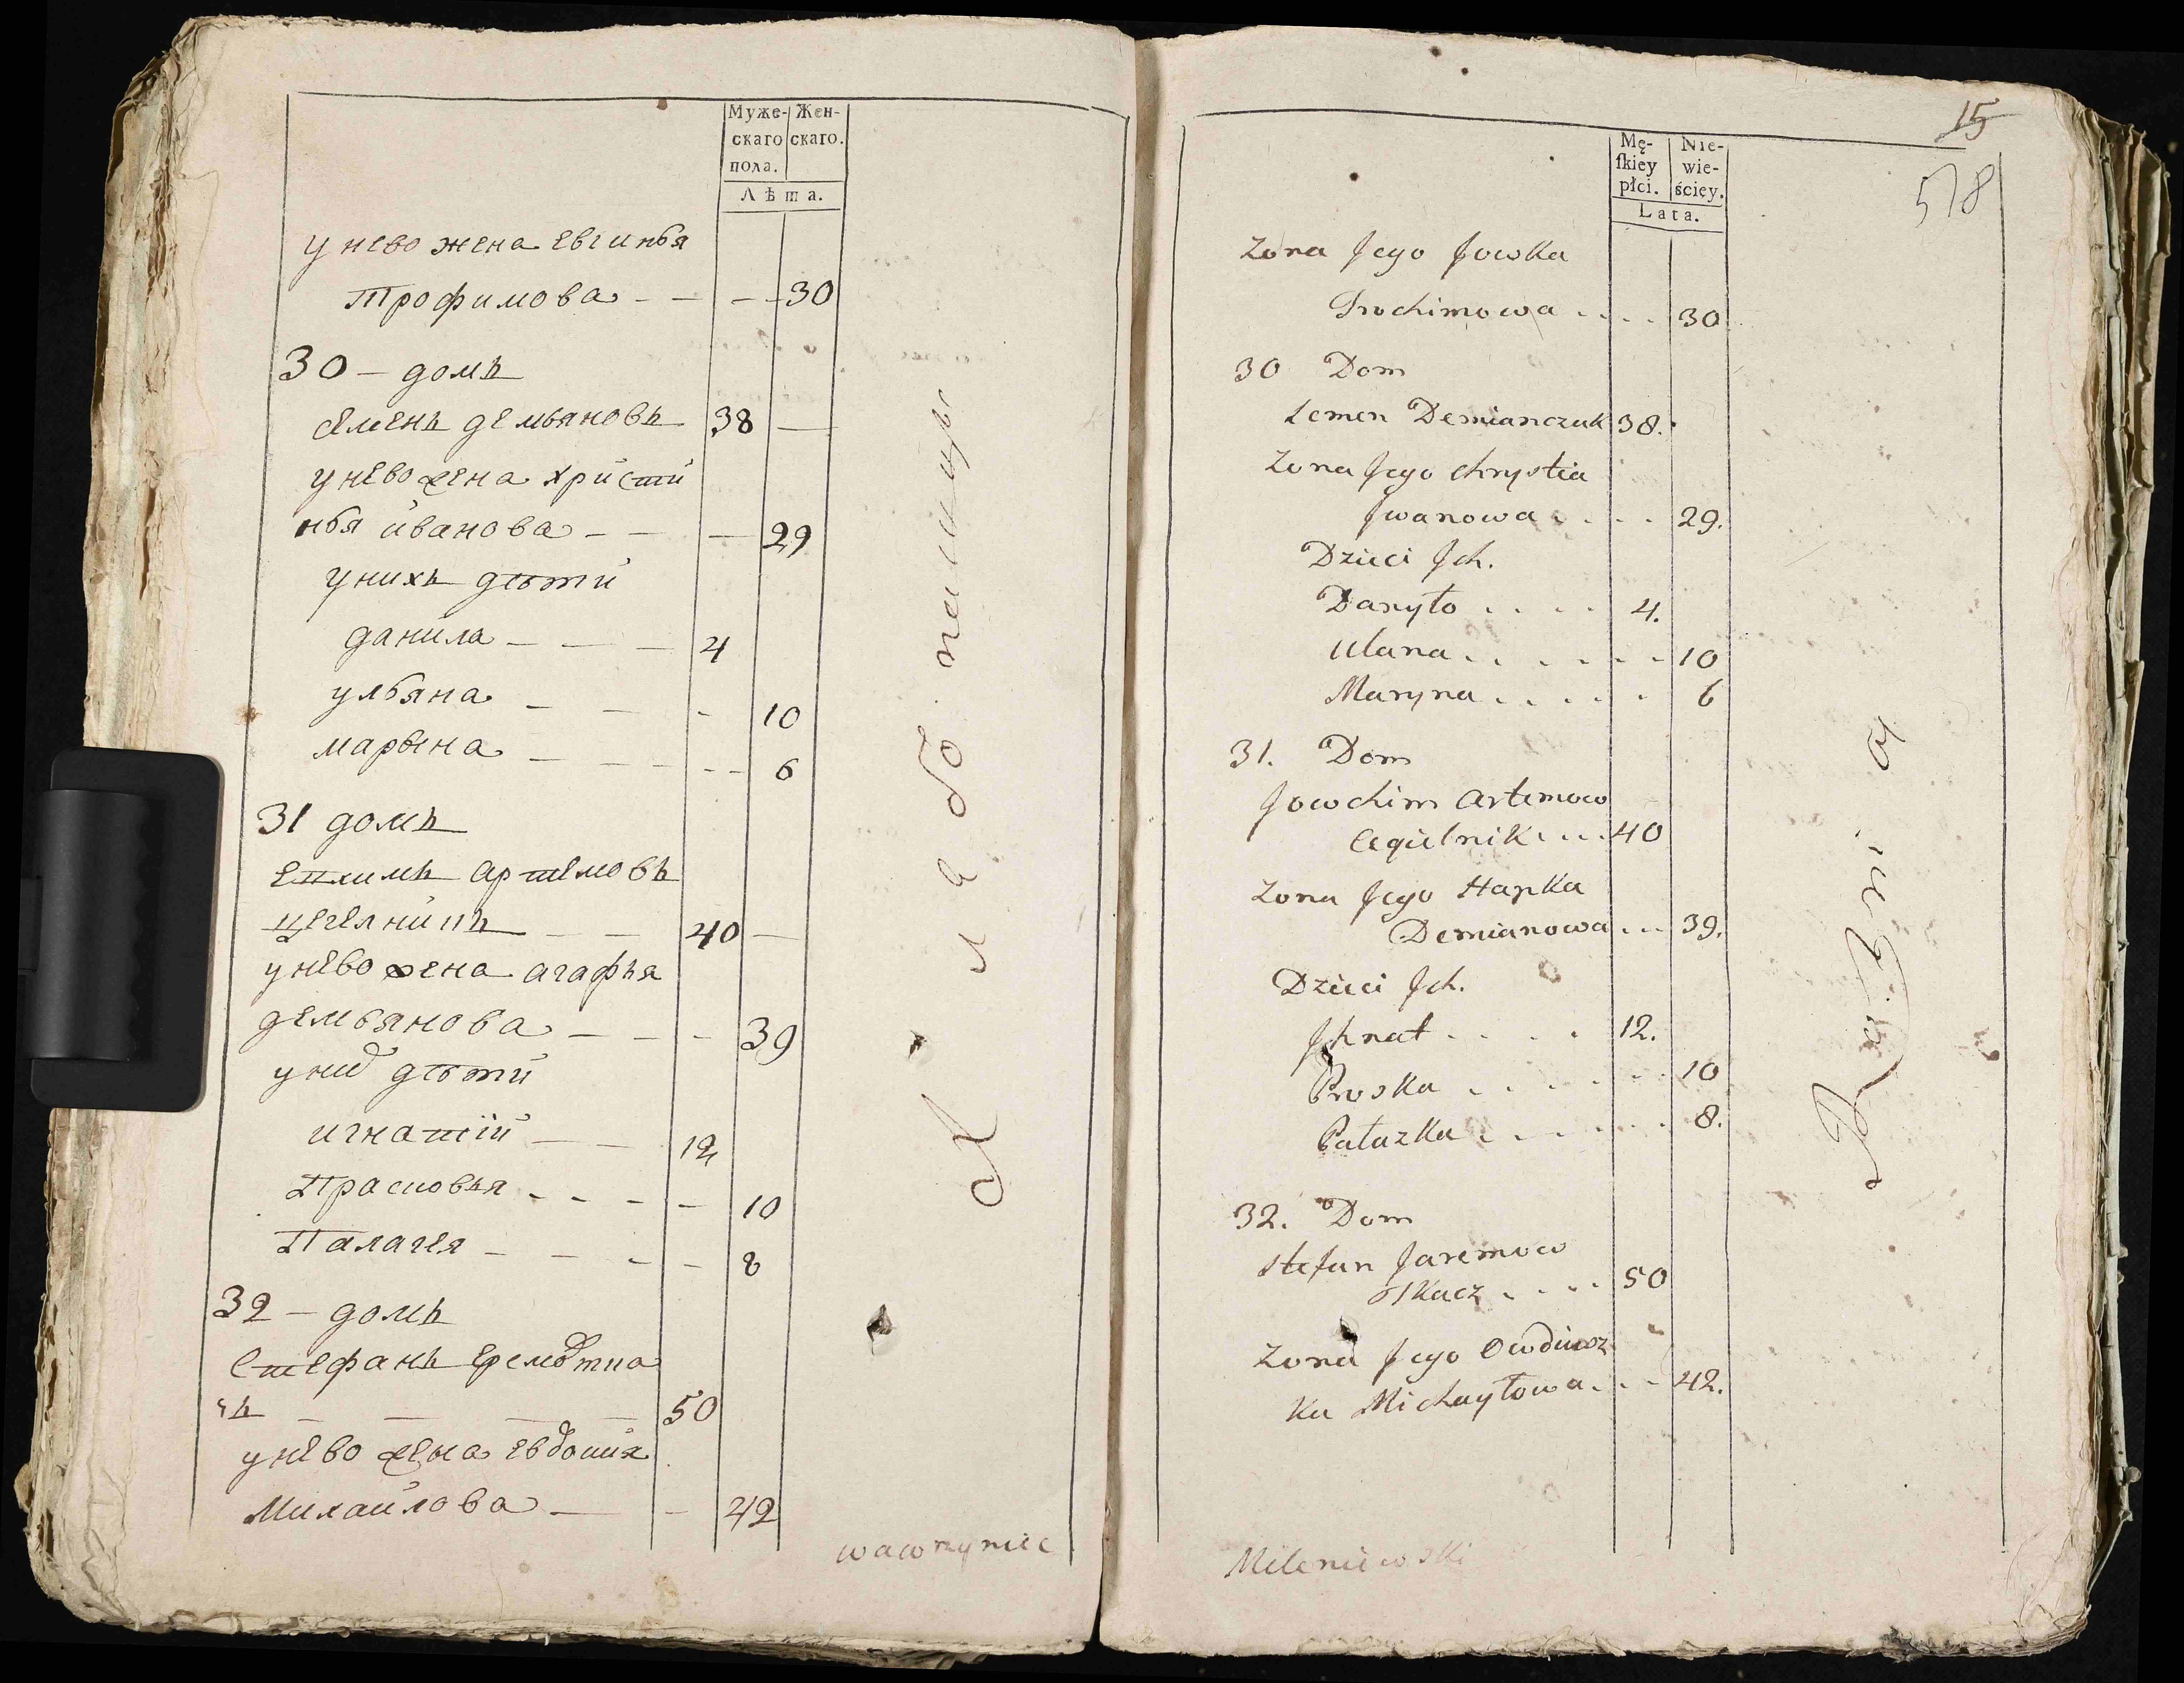 Муже-
скаго
пола.
Жен-
скаго.
Лѣта.
у нево жена евгинья
трофимова - - - - 30
30 - домъ
семенъ демьяновъ 38 -
у нево жена христи
нья иванова - - - 29
у нихъ дѣти
данила - - - 4
ульяна - - - 10
марына - - - - - 6
31 домъ
артемовъ
40 -
у нево жена агафья
демьянова - - - 39
дѣти
игнатій - - 12
Прасковья - - - - 10
Палагея - - - - 8
32 - домъ
Стефанъ
чъ - - - - 50
у нево жена евдокия
Михайлова - - 42
Хлебо пашцы
wawrzyniec
15
578
Mę-
skiey
płci.
Nie-
wie-
ściey.
Lata.
Zona Jego Jowka
Trochimowa .... 30
30 Dom
Semen Demianczuk 38.
Zona Jego Chrystia
Jwanowa .... 29.
Dzieci Jch.
Danyło .... 4.
Ulana ...... 10
Maryna ..... 6
31. Dom
Jowchim Artemow
Cegielnik .... 40
Zona Jego Hapka
Demianowa ... 39.
Dzieci Jch.
Jhnat .... 12.
Proska ...... 10
Pałazka ...... 8.
32. Dom
Stefan Jaremow
Tkacz .... 50
Zona Jego Owdiusz
ka Michayłowa ... 42.
Mileniewski